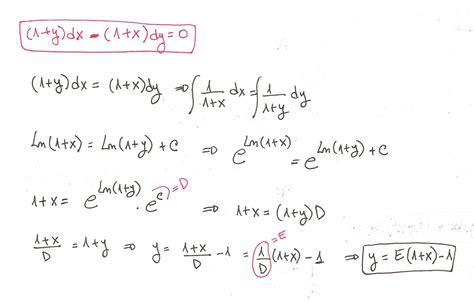 (1+y)dx - (1+x)dy = 0
(1+y)dx = (1+x)dy ⇒ ∫ 1/(1+x) dx = ∫ 1/(1+y) dy
Ln(1+x) = Ln(1+y) + C ⇒ e^(Ln(1+x)) = e^(Ln(1+y)+C)
1+x = e^(Ln(1+y)) · e^C =D ⇒ 1+x = (1+y)D
(1+x)/D = 1+y ⇒ y = (1+x)/D - 1 = 1/D (1+x) - 1 =E ⇒ y = E(1+x) - 1